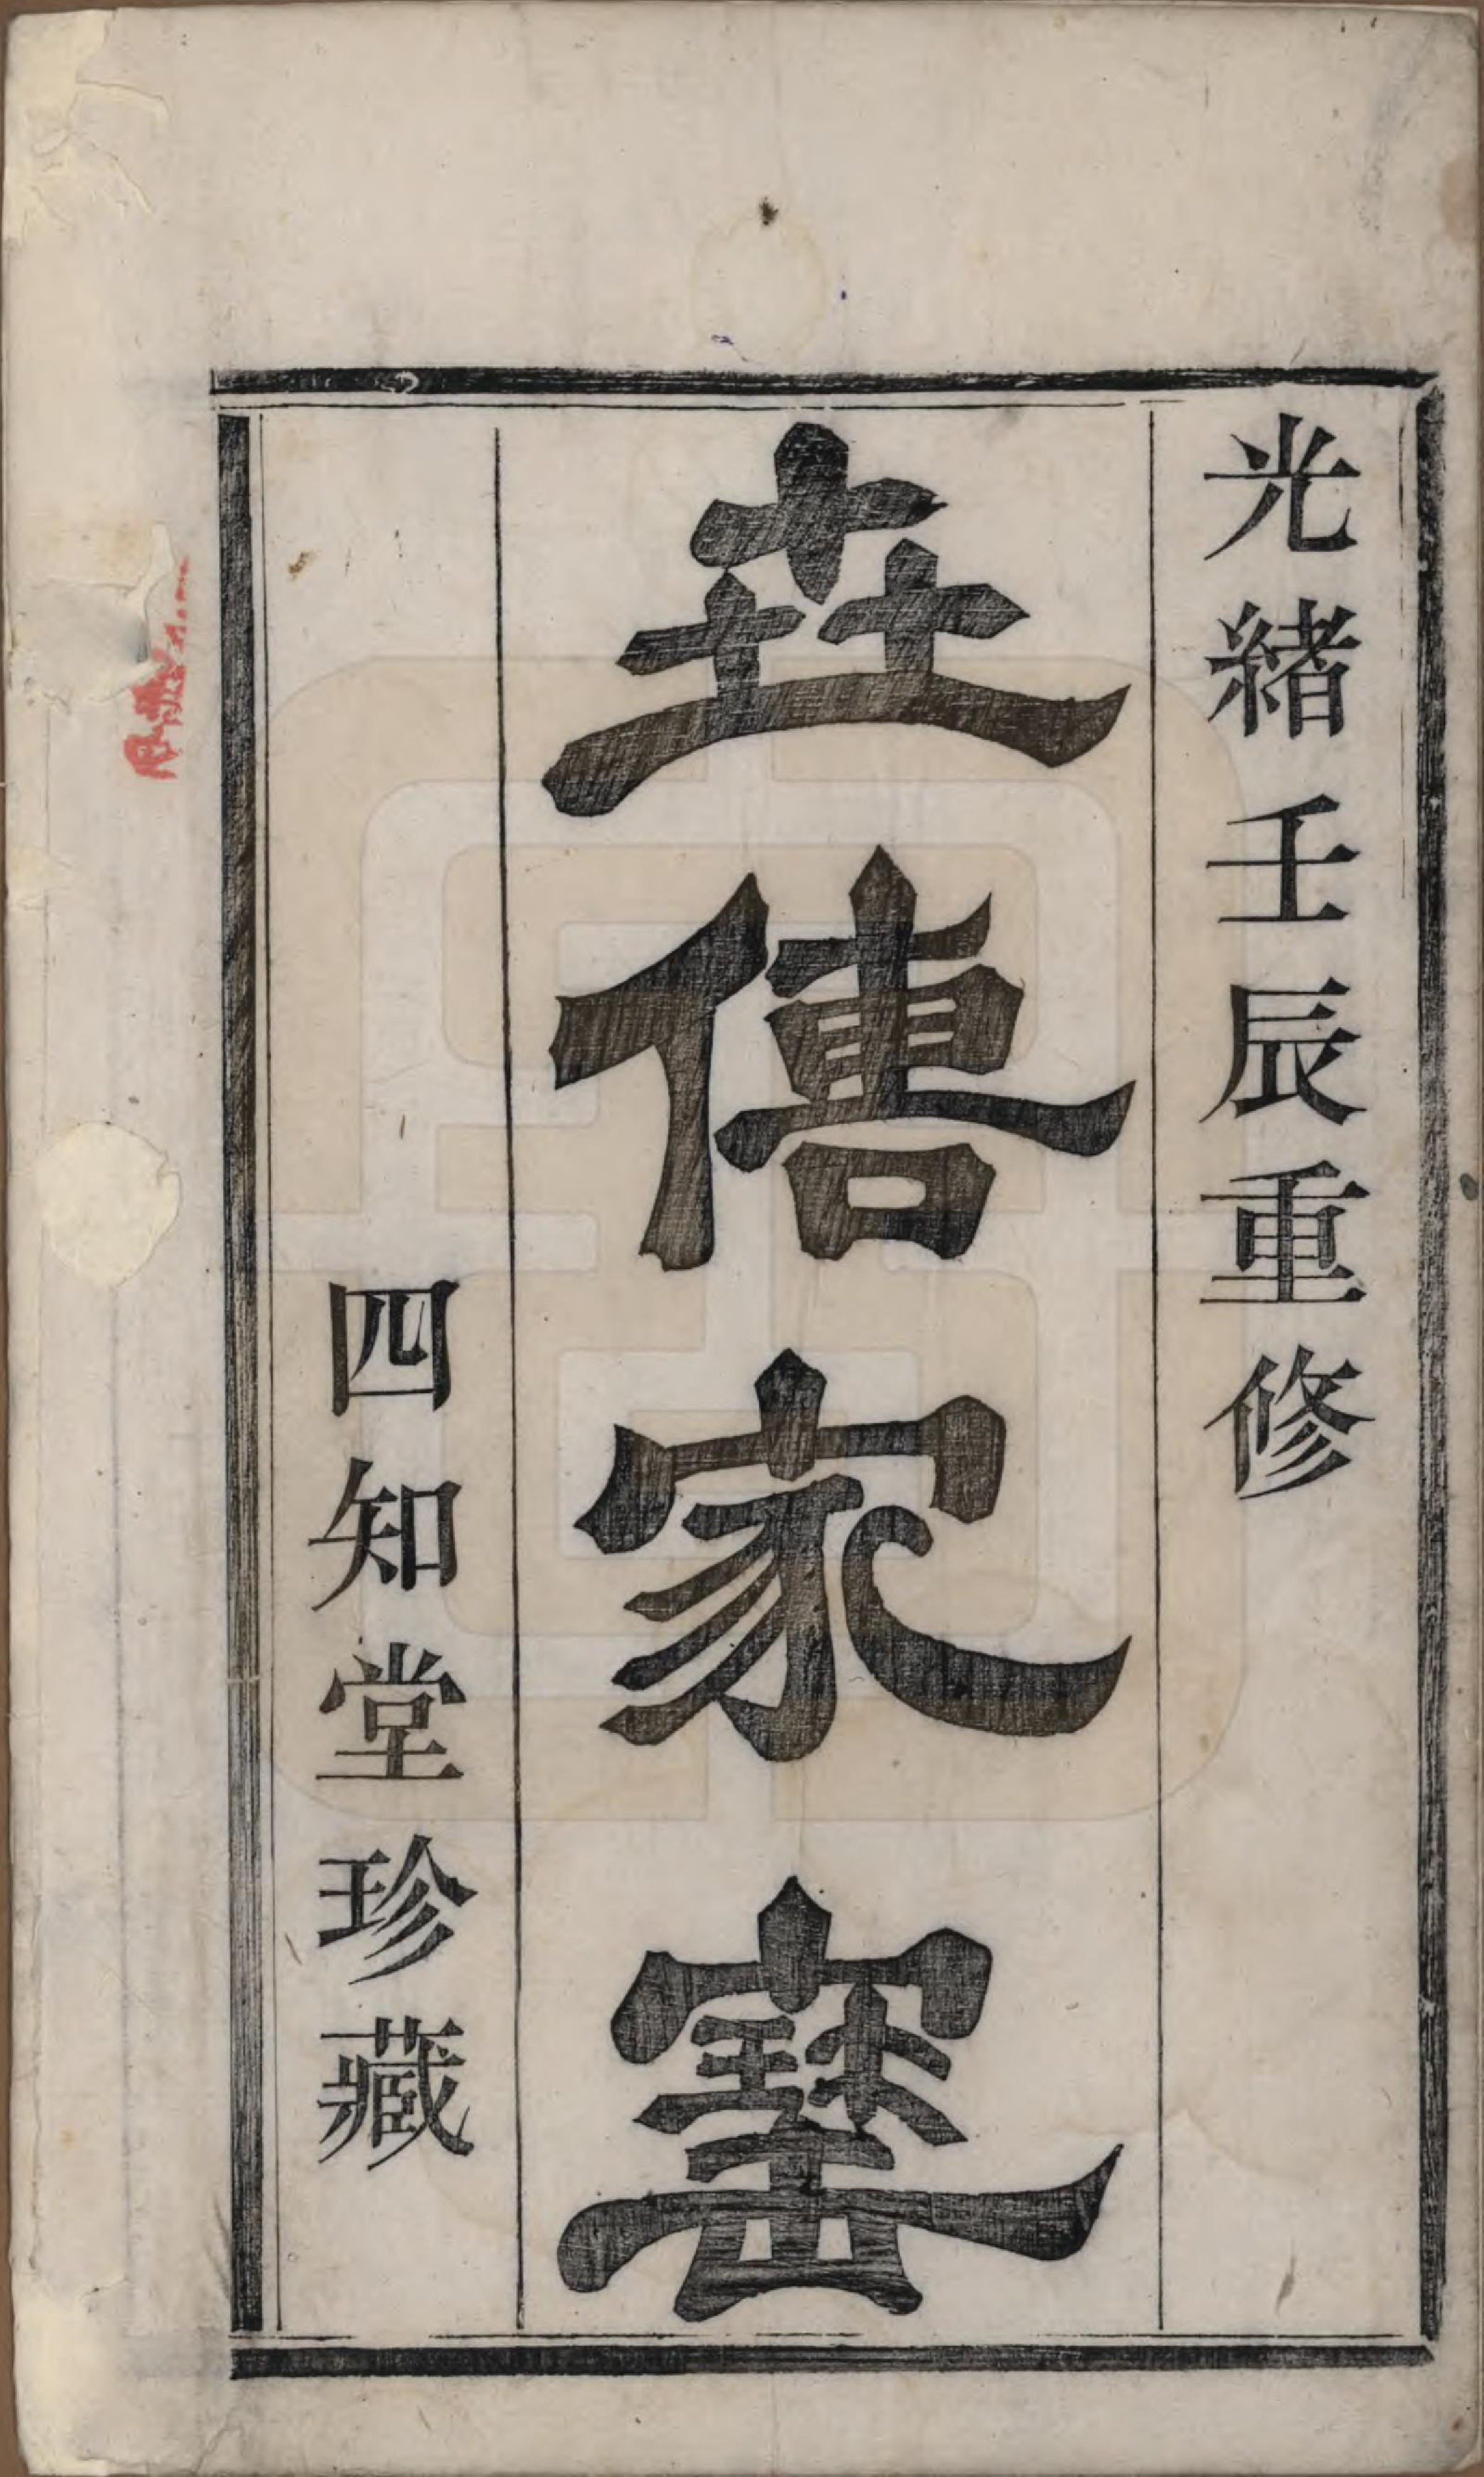 光緒壬辰重修
卋傳家寳
四知堂珍藏